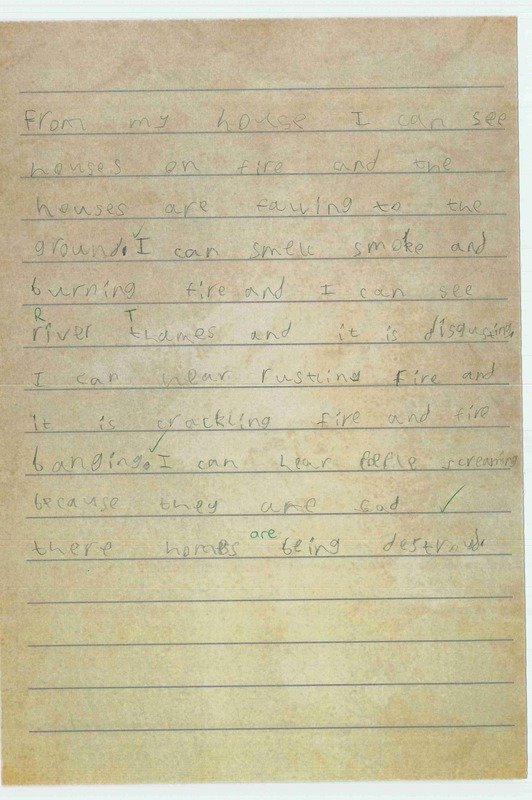 From my house I can see
houses on fire and the
houses are falling to the
ground. I can smell smoke and
burning fire and I can see
R T
river thames and it is disgusting.
I can hear rustling fire and
it is crackling fire and fire
banging. I can hear people screaming
because they are
are
there homes being